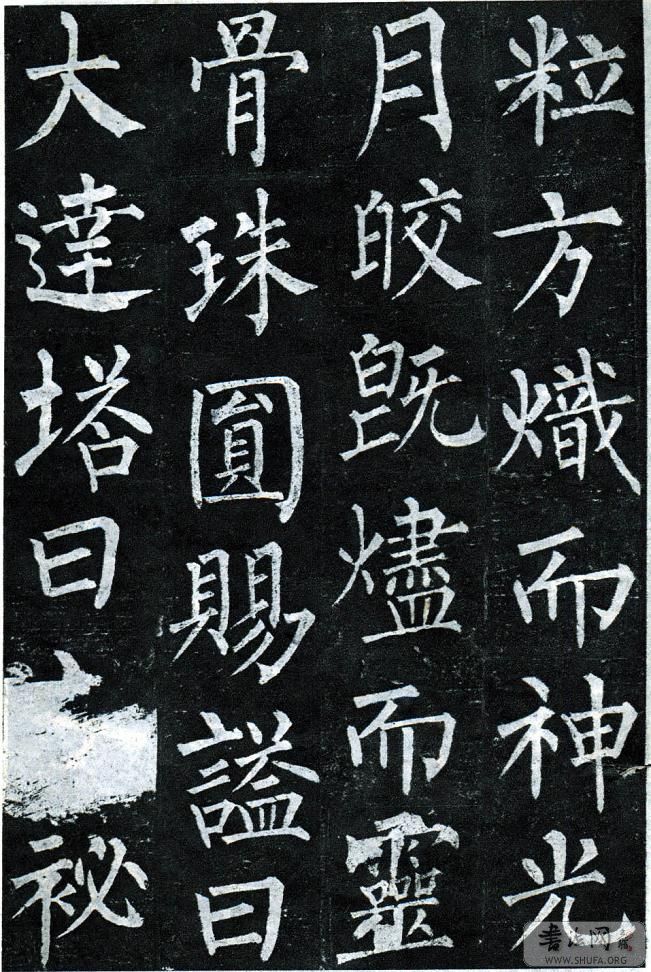 粒方熾而神光
月皎旣燼而靈
骨珠圎賜謚曰
大達塔曰祕
WWW.SHUFA.ORG